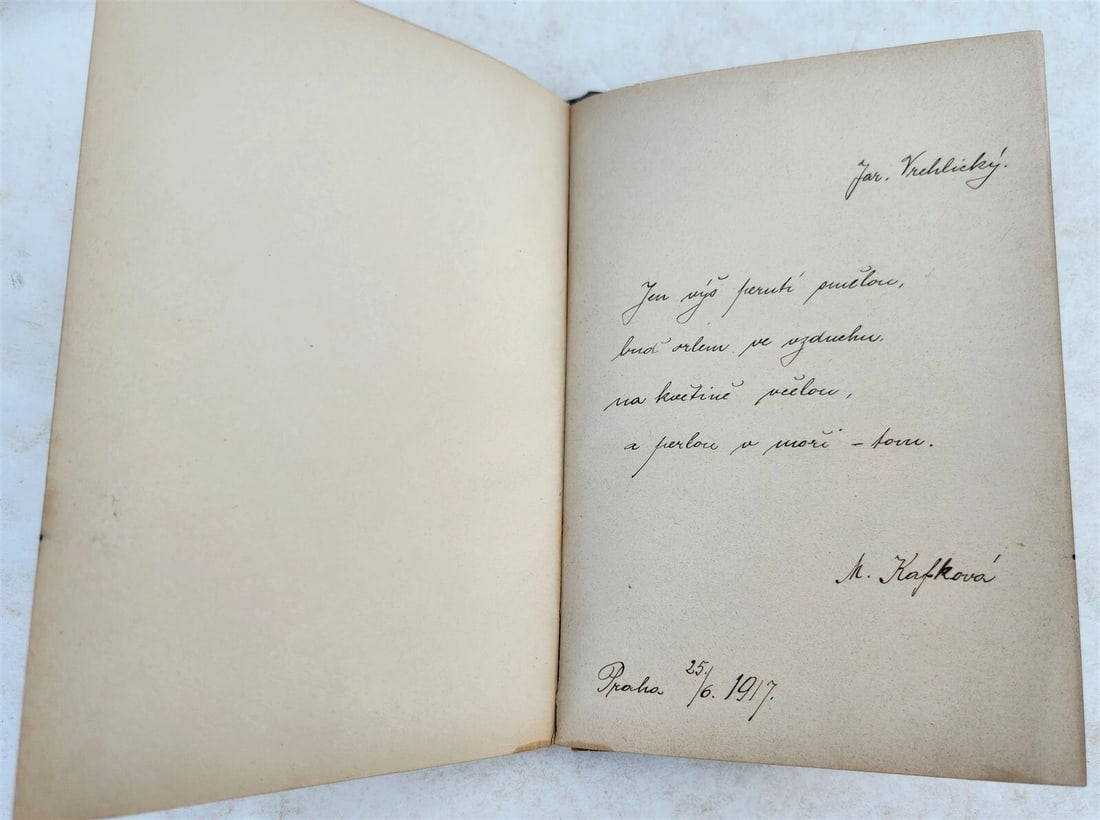 Jar. Vrchlický.
Jen výš perutí smělou,
buď orlem ve vzduchu
na květině včelou,
a perlou v moři – tom.
M. Kafková
Praha 25./6. 1917.